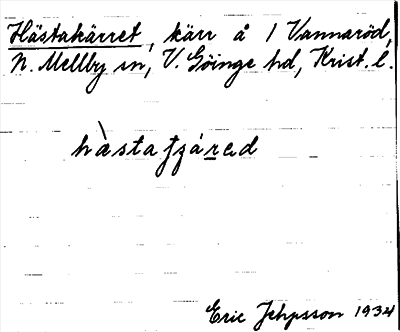 Hästakärret, kärr å 1 Vannaröd,
N. Mellby sn, V. Göinge hd, Krist. l.
hàsta
Eric Jepsson 1934